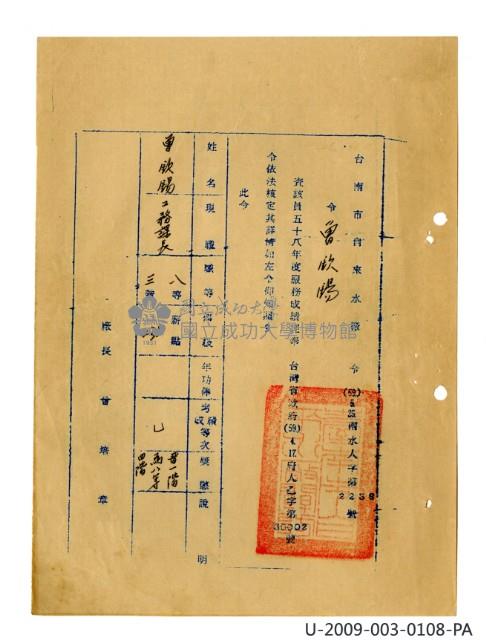 台南市自來水廠 令 (59).5.25.南水人字第2238號
令 曾欽賜
查該員五十八年度服務成績業奉 台灣省政府(59).4.17.府人乙字第36002號
令依法核定其詳情如左令仰知照
此令
姓名 現職 職等 年功俸 考績成 等次 獎懲 說明
曾欽賜 工務課長 八等 三 薪點 乙 晉一階
四階
廠長 曾培章
國立成功大學
國立成功大學博物館
1931
U-2009-003-0108-PA